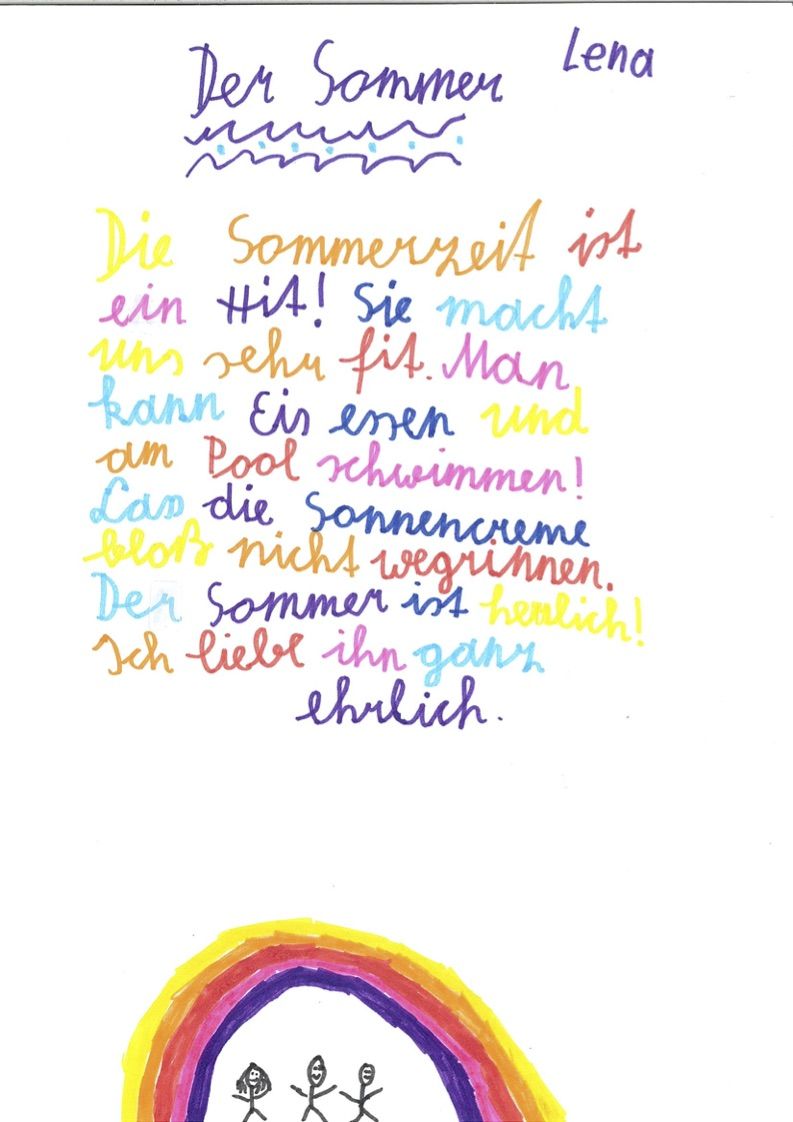 Lena
Der Sommer
Die Sommerzeit ist
ein Hit! Sie macht
uns sehr fit. Man
kann Eis essen und
am Pool schwimmen!
Las die Sonnencreme
bloß nicht wegrinnen.
Der Sommer ist herrlich!
Ich liebe ihn ganz
ehrlich.